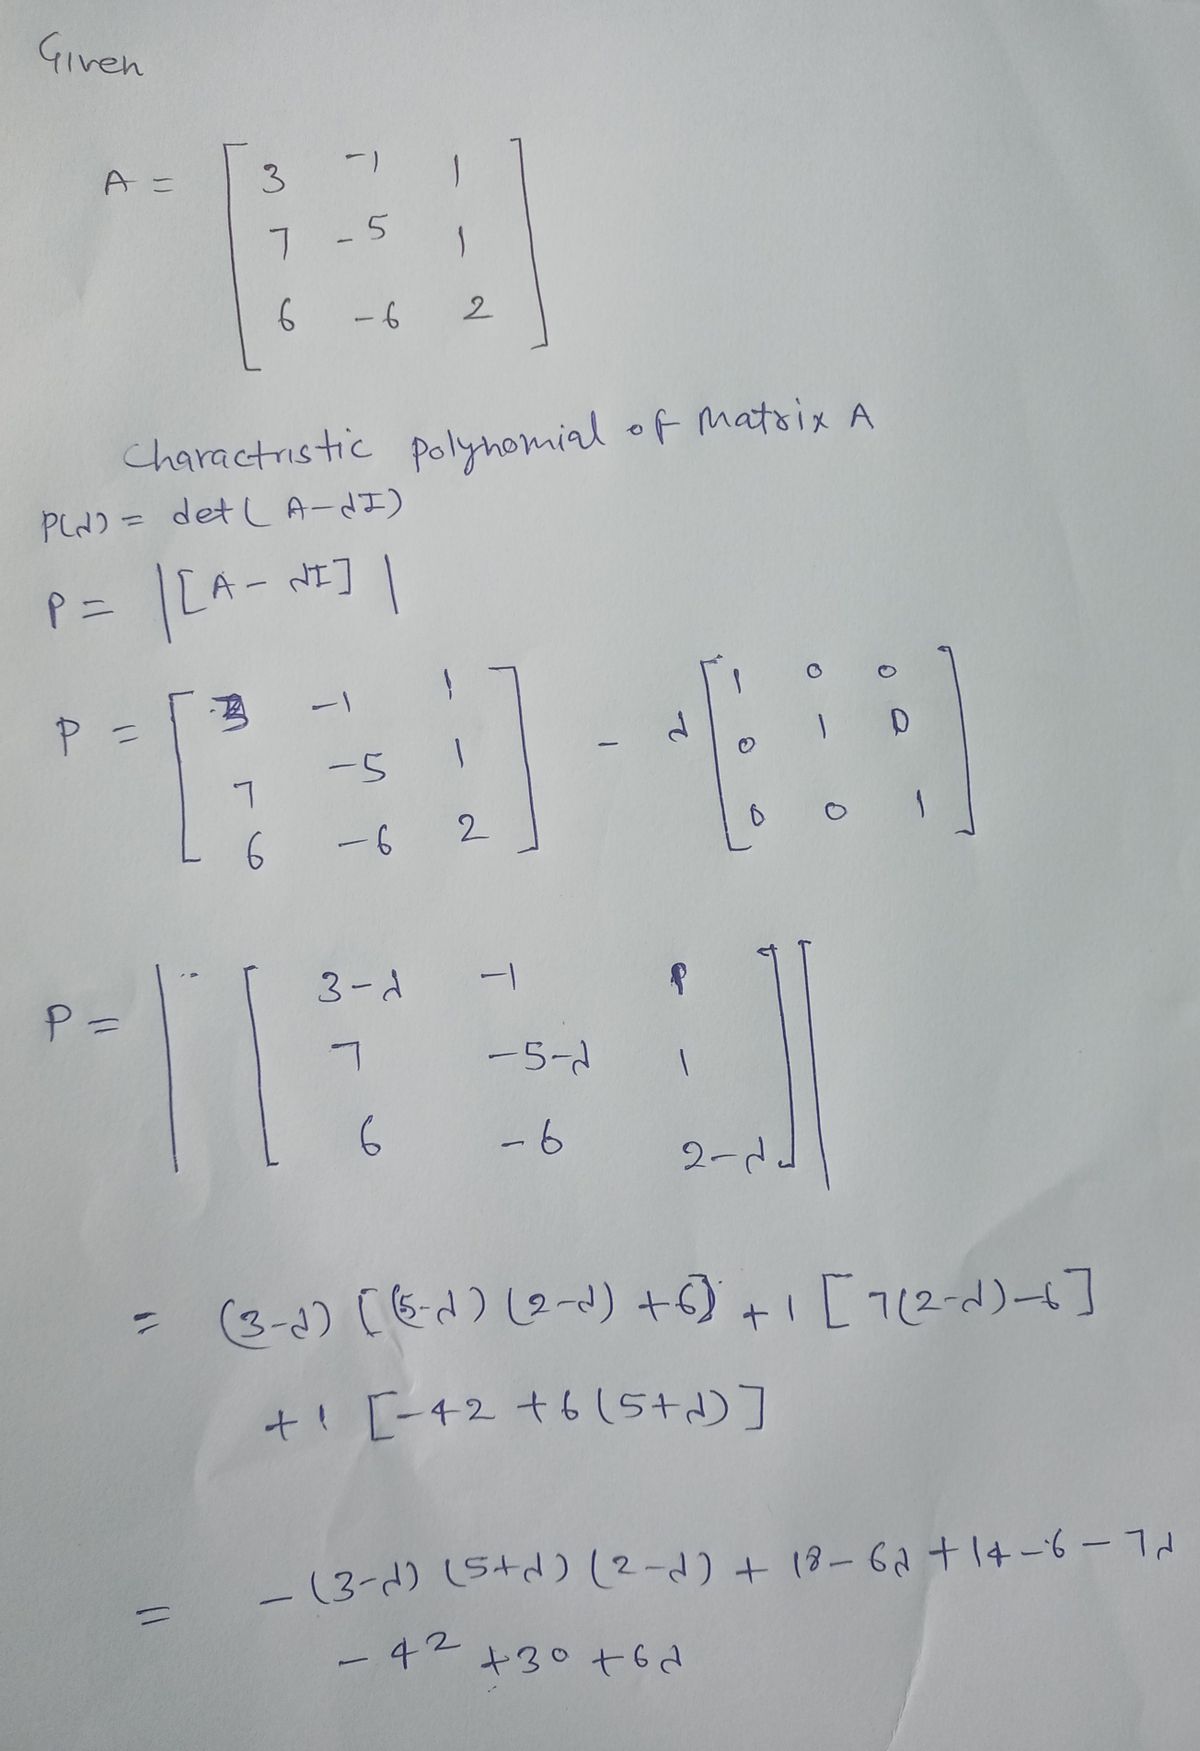 Given
A = [ 3 -1 1
7 -5 1
6 -6 2 ]
Charactristic Polynomial of Matrix A
P(λ) = det ( A-λI)
P = |[A - λI]|
P = [ 3 -1 1
7 -5 1
6 -6 2 ] - λ [ 1 0 0
0 1 0
0 0 1 ]
P = | [ 3-λ -1 1
7 -5-λ 1
6 -6 2-λ ] |
= (3-λ) [(5-λ) (2-λ) +6] +1 [7(2-λ)-6]
+1 [-42 +6(5+λ)]
= -(3-λ) (5+λ) (2-λ) + 18-6λ+14-6-7λ
-42 +30 +6λ